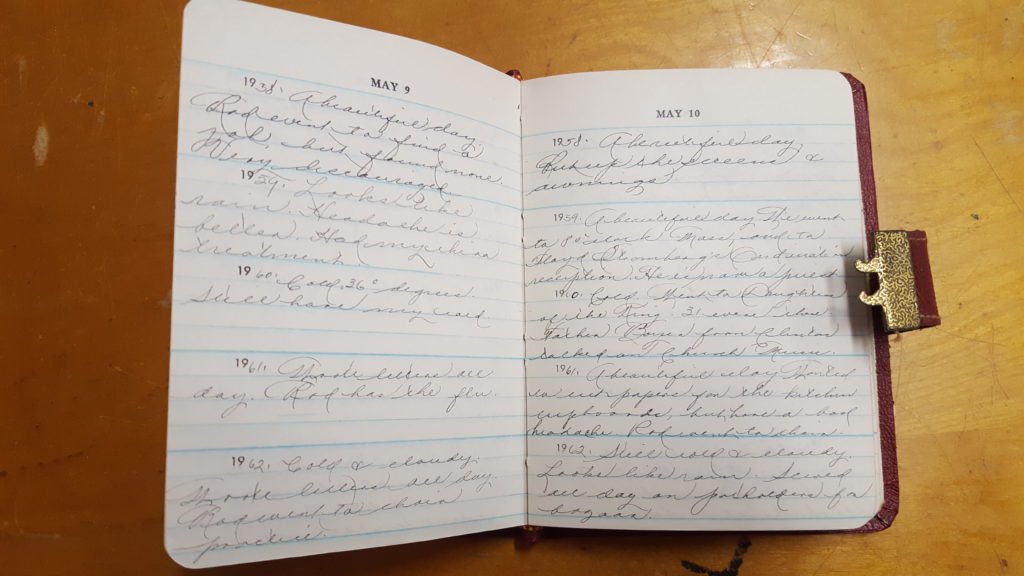 MAY 9
1958. A beautiful day.
Rod went to find a
job, but found none.
Very discouraged.
1959. Looks like
rain. Headache is
better. Had my
treatment.
1960. Cold, 36° degrees.
Still have my cold.
1961. Wrote letters all
day. Rod has the flu.
1962. Cold & cloudy.
Wrote letters all day.
Rod went to choir
practice.
MAY 10
1958. A beautiful day.
Put up the screens &
awnings
1959. A beautiful day. We went
to 8 o'clock Mass, and to
Lloyd
reception. He is now a priest
1960. Cold. Went to Daughters
of the King. 31 were there.
Father from Clinton
talked on Church Music.
1961. A beautiful day. Worked
in papers for the kitchen
cupboards, but have a bad
headache. Rod went to choir.
1962. Still cold & cloudy.
Looks like rain. Sewed
all day on potholders for
bazaar.